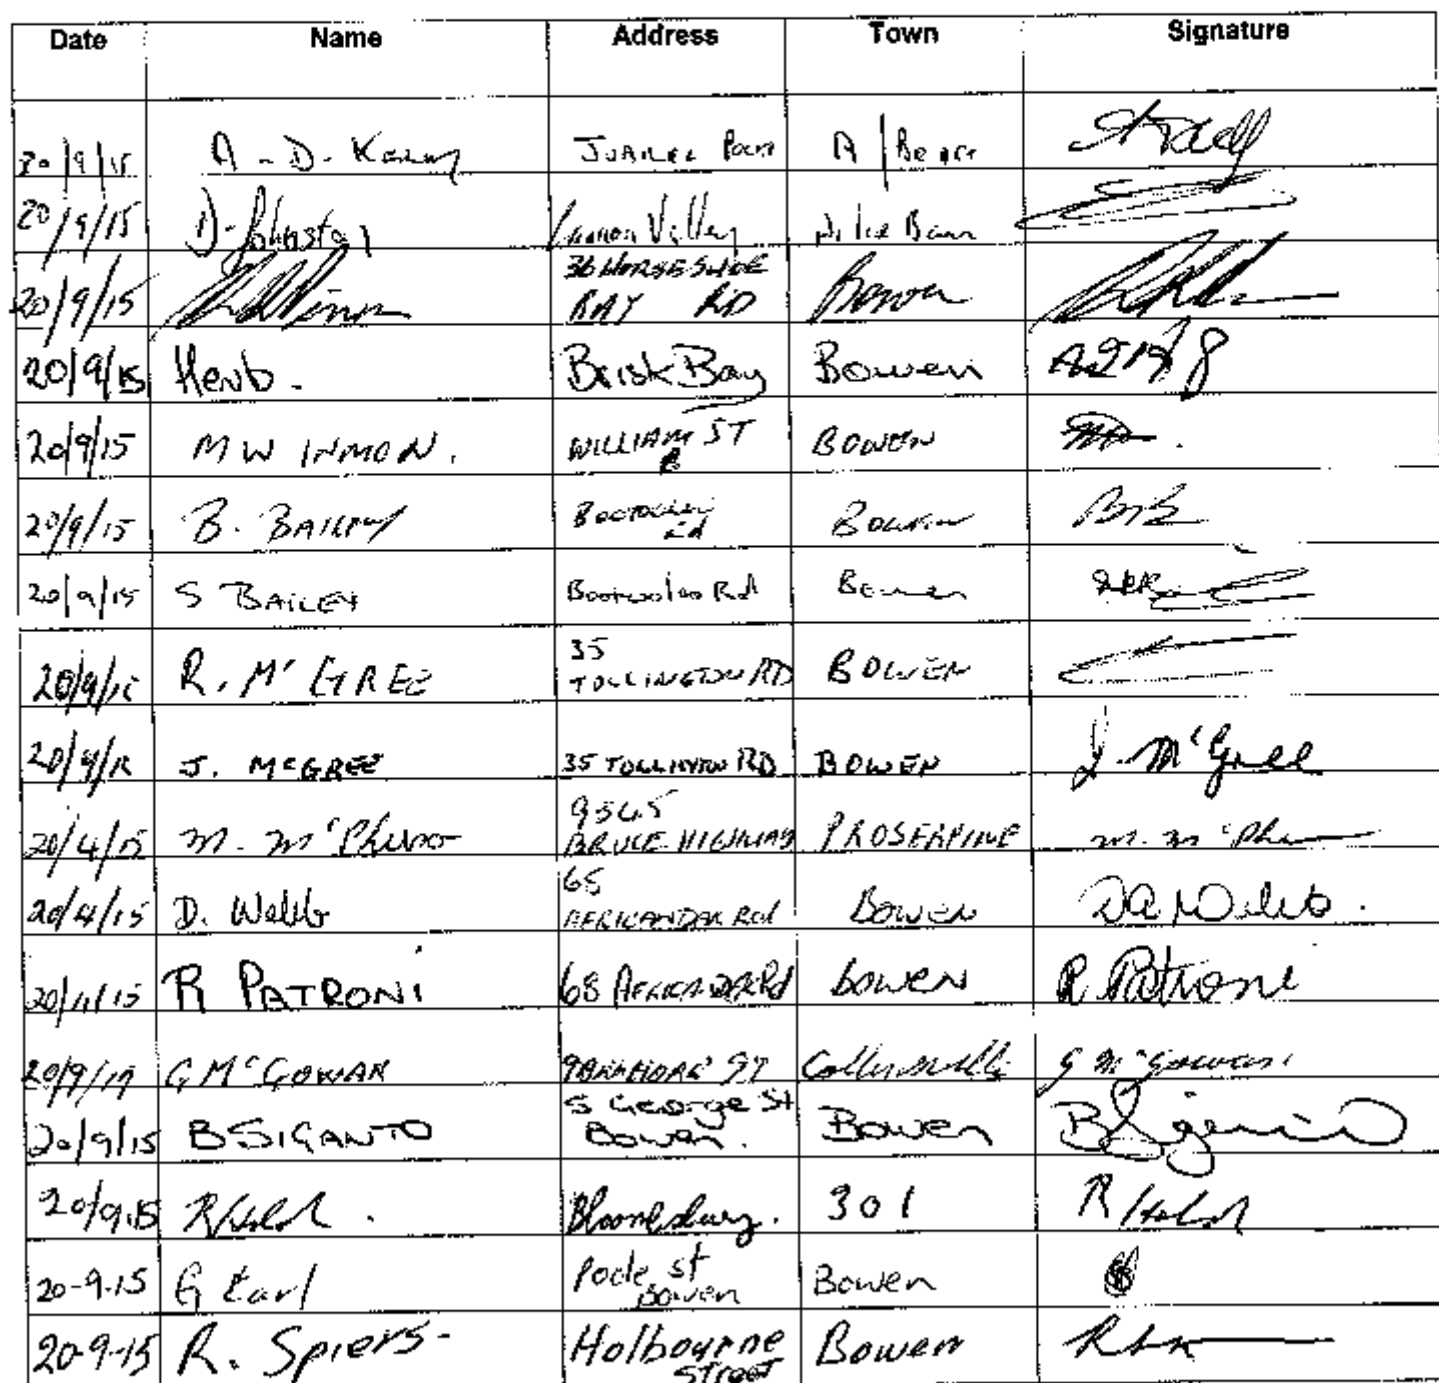 Date Name Address Town Signature
20/9/15 A - D. Kelly Jubilee Pocket A/Beach
20/9/15 D. Johnston Cannon Valley Airlie Beach
36 HORSESHOE
20/9/15 BAY RD Bowen
20/9/15 Herb. Brisk Bay Bowen
20/9/15 MW INMON. WILLIAM ST BOWEN
20/9/15 B. BAILEY Bowen
20/9/15 S BAILEY Bootooloo Rd Bowen
35
20/9/15 R. Mc GREE TOLLINGTON RD BOWEN
20/9/15 J. McGREE 35 TOLLINGTON RD BOWEN J. McGree
9565
20/4/15 M. McPh BRUCE HIGHWAY PROSERPINE M. McPh
65
20/4/15 D. Webb AFRICANDAR Rd Bowen DA Webb.
20/11/15 R PATRONI 68 AFRICANDAR Rd Bowen R Patroni
20/9/19 G McGOWAN ST Collinsville G McGowan
5 George St
20/9/15 B SIGANTO Bowen. Bowen B Siganto
20/9.15 R Holst. Bloomsbury. 301 R Holst
20-9.15 G Earl Poole st Bowen
Bowen
20-9-15 R. Spiers- Holbourne Bowen
Street